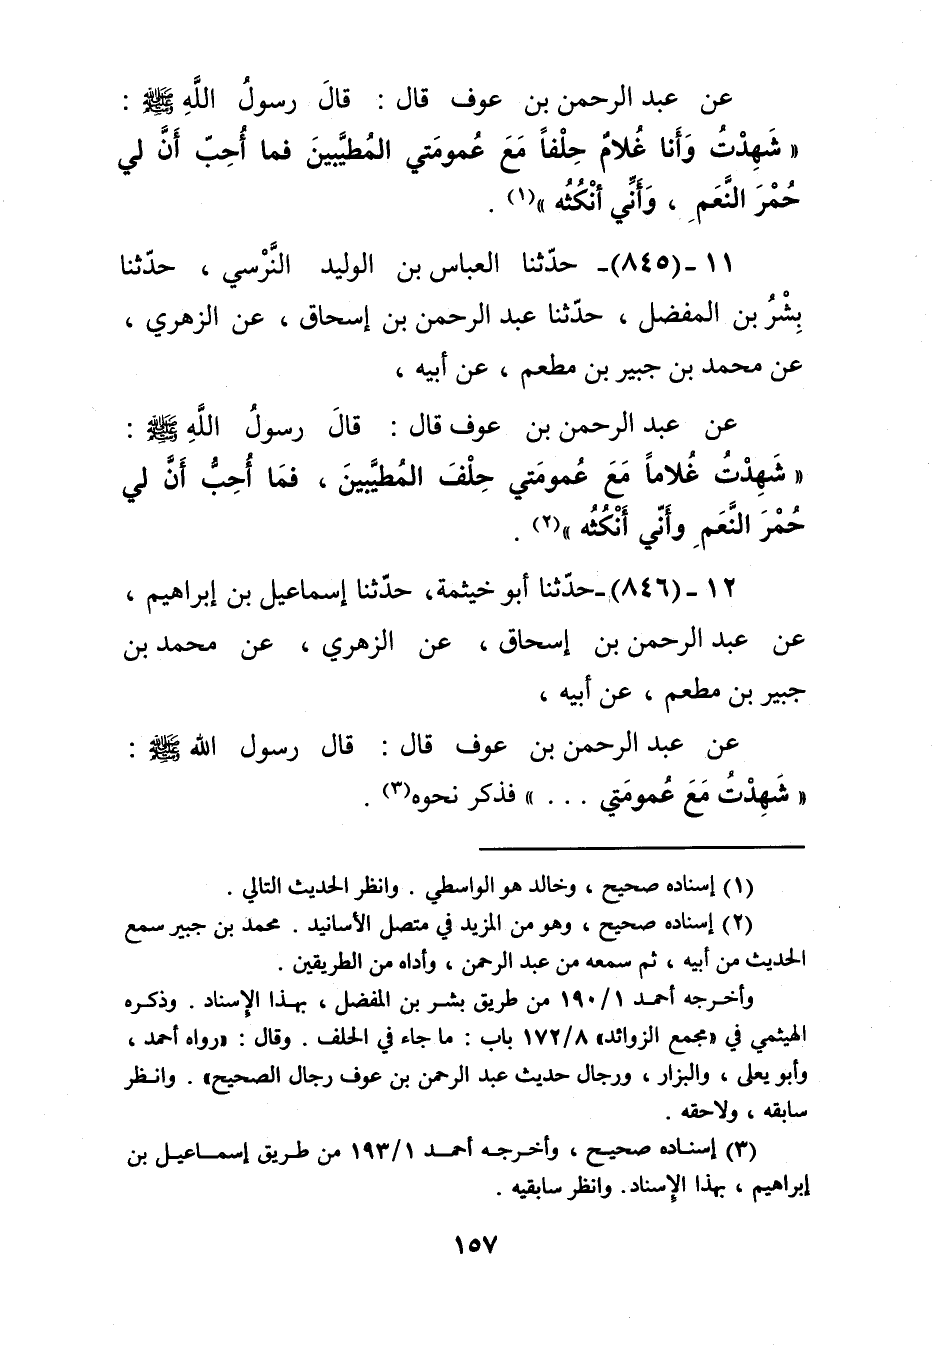 عن عبد الرحمن بن عوف قال : قالَ رسولُ اللَّهِ ﷺ :
« شَهِدْتُ وَأَنا غُلامٌ حِلْفاً مَعَ عُمومَتي المُطيَّبينَ فما أُحِبّ أَنَّ لي
حُمْرَ النَّعَمِ ، وَأَنِّي أنْكُثُه »(١) .
١١ -(٨٤٥)- حدّثنا العباس بن الوليد النَّرْسي ، حدّثنا
بِشْرُ بن المفضل ، حدّثنا عبد الرحمن بن إسحاق ، عن الزهري ،
عن محمد بن جبير بن مطعم ، عن أبيه ،
عن عبد الرحمن بن عوف قال : قالَ رسولُ اللَّهِ ﷺ :
« شَهِدْتُ غُلاماً مَعَ عُمومَتي حِلْفَ المُطيَّبينَ ، فمَا أُحِبُّ أَنَّ لي
حُمْرَ النَّعَمِ وأَنّي أَنْكُثُه »(٢) .
١٢ -(٨٤٦)-حدّثنا أبو خيثمة، حدّثنا إسماعيل بن إبراهيم ،
عن عبد الرحمن بن إسحاق ، عن الزهري ، عن محمد بن
جبير بن مطعم ، عن أبيه ،
عن عبد الرحمن بن عوف قال : قال رسول الله ﷺ :
« شَهِدْتُ مَعَ عُمومَتي . . . » فذكر نحوه(٣) .
(١) إسناده صحيح ، وخالد هو الواسطي . وانظر الحديث التالي .
(٢) إسناده صحيح ، وهو من المزيد في متصل الأسانيد . محمد بن جبير سمع
الحديث من أبيه ، ثم سمعه من عبد الرحمن ، وأداه من الطريقين .
وأخرجه أحمد ١/ ١٩٠ من طريق بشر بن المفضل ، بهذا الإسناد . وذكره
الهيثمي في «مجمع الزوائد» ٨/ ١٧٢ باب : ما جاء في الحلف . وقال : «رواه أحمد ،
وأبو يعلى ، والبزار ، ورجال حديث عبد الرحمن بن عوف رجال الصحيح» . وانظر
سابقه ، ولاحقه .
(٣) إسناده صحيح ، وأخرجه أحمد ١/ ١٩٣ من طريق إسماعيل بن
إبراهيم ، بهذا الإسناد. وانظر سابقيه .
١٥٧